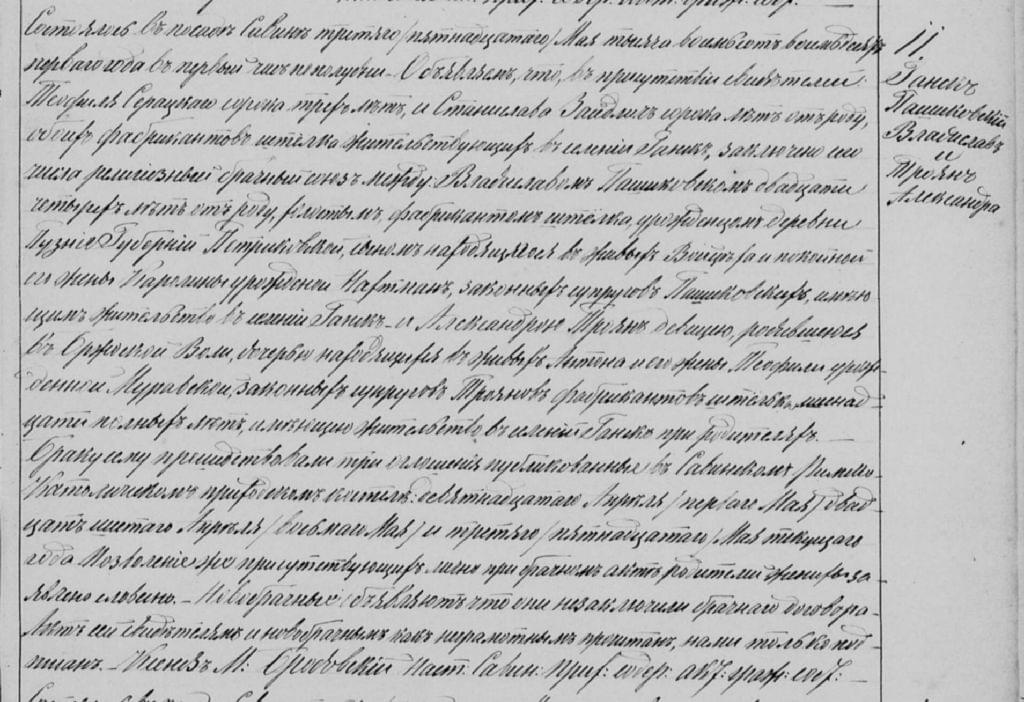 Состоялось въ посадѣ Савинѣ третяго /пятнадцатаго/ Мая тысяча восемьсотъ восемьдесятъ
перваго года въ первый часъ по полудни. – Объявляемъ, что, въ присутствіи свидѣтелей
Теофиля Серацкаго сорока трехъ лѣтъ, и Станислава сорока лѣтъ отъ роду,
обоихъ фабрикантовъ жительствующихъ въ имѣніи Ганскъ, заключено сего
числа религіозный брачный союзъ между: Владиславомъ Пашковскимъ двадцати
четырехъ лѣтъ отъ роду, холостымъ, фабрикантомъ уроженцомъ деревни
Губерніи Петриковской, сыномъ находящагося въ живыхъ Войцѣха и покойной
его жены Каролины урожденной законныхъ супруговъ Пашковскихъ, имѣю-
щимъ жительство въ имѣніи Ганскъ – и Александрою Троянъ девицею, родившеюся
въ Воли, дочерью находящихся въ живыхъ Антона и его жены Теофили урож-
денной Муравской, законныхъ супруговъ Трояновъ фабрикантовъ
цати полныхъ лѣтъ, имѣющею жительство въ имѣніи Ганско при родителяхъ. –
Браку сему предшествовали три оглашенія публикованные въ Савинскомъ Римско-
Католическомъ приходскомъ костелѣ: девятнадцатаго Апрѣля /перваго Мая/ двад-
цать шестаго Апрѣля /восьмаго Мая/ и третяго /пятнадцатаго/ Мая текущаго
года Позволеніе же присутствующихъ лично при брачномъ актѣ родители за
явлено словесно. – Новобрачные объявляютъ что они незаключили брачнаго договора –
Актъ сей свидѣтелямъ и новобрачнымъ какъ неграмотнымъ прочитанъ, нами только под-
писанъ. – Ксендзъ М: Наст: Савин: Прих: содер: акт: граж: сост: –
11.
Ганскъ
Пашковскій
Владиславъ
и
Троянъ
Александра